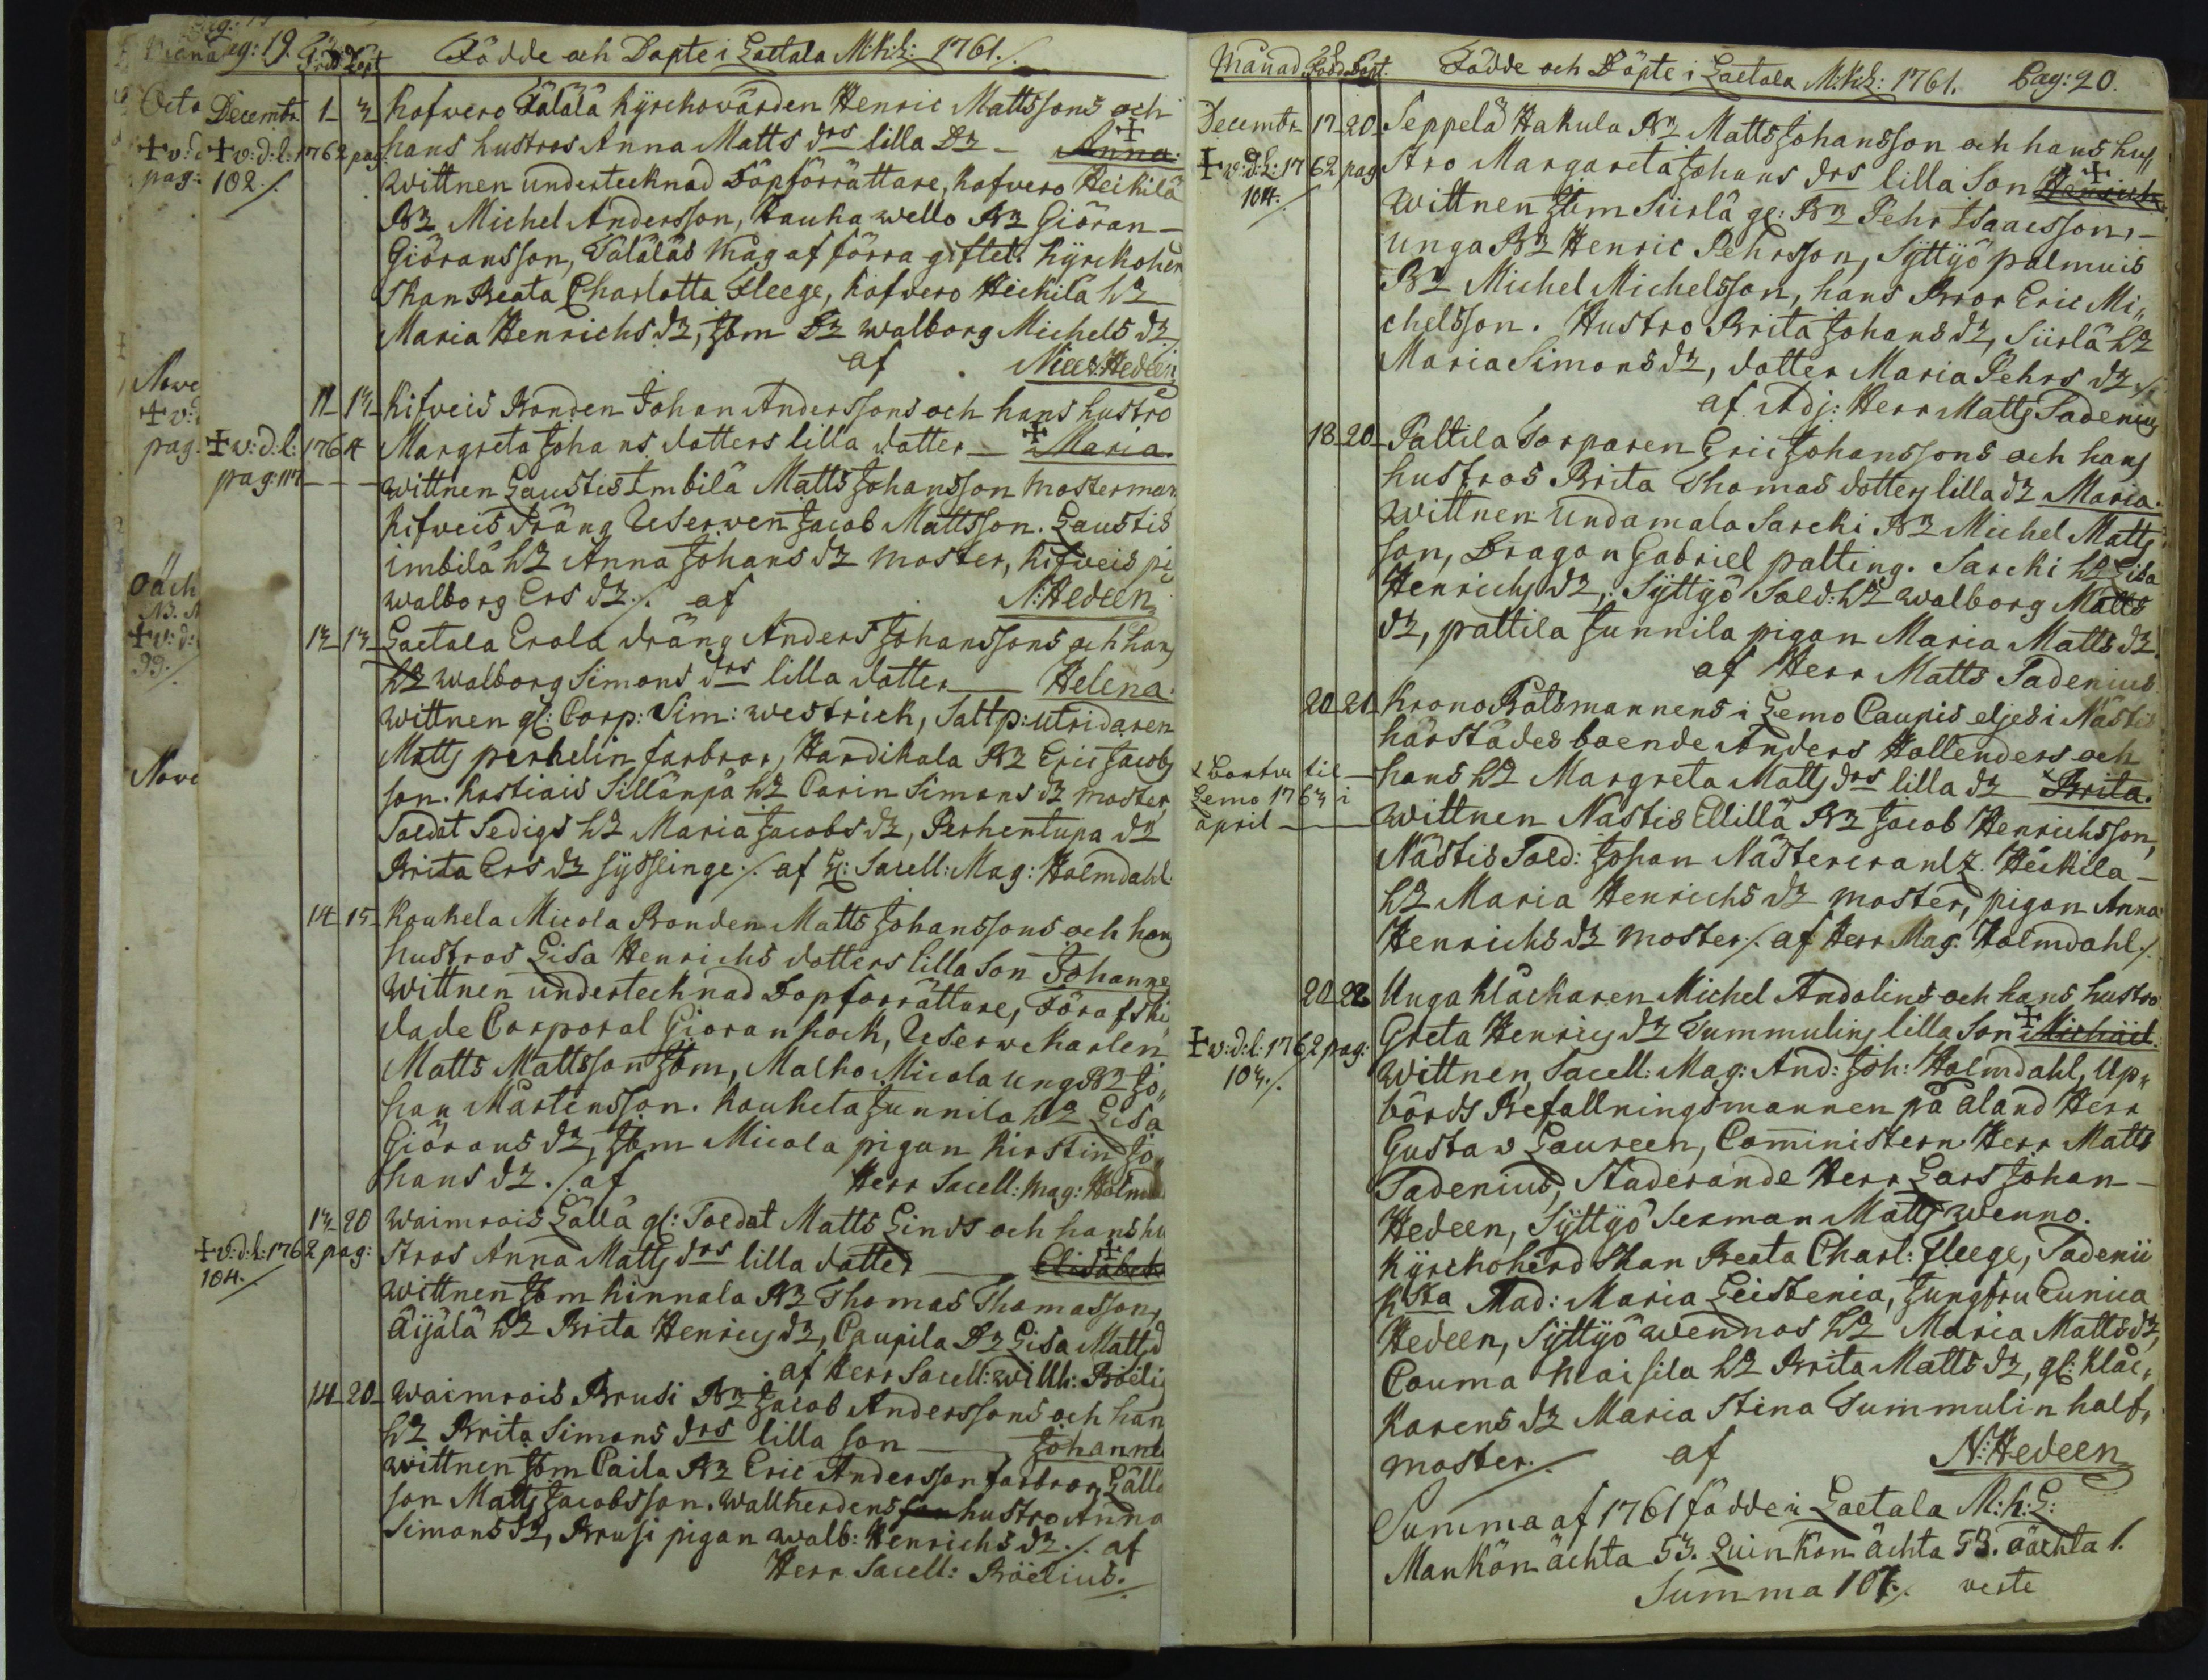 Pag: 19.
Född Döpt
Födde och Döpte i Laetala M:k:l: 1761.
Decembr 1 3 Kofwero Tälälä Kyrckowärden Henric Mattssons och
✝v:d:l: 1762 pag: 102. hans hustros Anna Matts drs lilla Dr Anna.
Wittnen undertecknad Döpförrättare, Kofwero Heickilä
Br Michel Andersson, Rauka wello Br Giöran
Giöransson, Täläläs Måg af förra giftet. Kyrckoher
skan Beata Charlotta Fleege, Kofwero Heickilä h2
Maria Henrichs dr, Jbm Dr Walborg Michels dr
af Nils Hedeen
11 13 Kifweis Bonden Johan Anderssons och hans hustro
✝v:d:l: 1764 pag: 117 Margreta Johans dotters lilla dotter Maria.
Wittnen Laustis Imbilä Matts Johansson Mosterman
Kifweis dräng Reserwen Jacob Mattsson. Laustis
imbilä h2 Anna Johans dr moster, Kifweis pi
Walborg Ers dr ./. af N: Hedeen
13 13 Laetala Erola dräng Anders Johanssons och hans
h2 Walborg Simons drs lilla dotter Helena.
Wittnen gl: Corp: Sim: Westrick, Saltp: utridaren
Matts perhelin farbror, Handikala Br Eric Jacobs
son. Kostiais Sillänpä h2 Carin Simons dr moster,
Soldat Sedigs h2 Maria Jacobs dr, Perhentupa dr
Brita Ers dr syslinge ./. af H: Sacell: Mag: Holmdahl
14 15 Koukela Micola Bonden Matts Johanssons och hans
hustros Lisa Henrichs dotters lilla Son Johannes
Wittnen undertecknad Dopförrättare, Föraf ski
dade Corporal Giöran hock, Reserwekarlen
Matts Mattsson Jbm, Malko Micola ung Br Jo
han Mårtensson. Koukela Junnila h2 Lisa
Giörans dr, Jbm Micola pigan Kirstin Jo
hans dr ./. af Herr Sacell: Mag: Holm
13 20 Waimrois Lällä gl: Soldat Matts Linds och hans hu
✝v:d:l: 1762 pag: 104. stros Anna Matts drs lilla dotter Elisabet
Wittnen Jbm hinnala Br Thomas Thomasson,
Äijälä h2 Brita Henrics dr, Caupila Dr Lisa Matts d
af Herr Sacell: Willh: Böeli
14 20 Waimrois Brusi Br Jacob Anderssons och han
h2 Brita Simons drs lilla son Johannes
Wittnen Jbm Caila Br Eric Andersson farbror, Lällä
son Matts Jacobsson. Wallherdens hustro Anna
Simons dr, Brusi pigan Walb: Henrichs dr ./. af
Herr Sacell: Böelius.
Månad Född Döpt.
Födde och Döpte i Laetala M:k:l: 1761. Pag: 20.
Decembr 17 20 Seppelä Hakula Br Matts Johansson och hans hus
✝v:d:l: 1762 pag 104. tro Margareta Johans drs lilla Son Henrich
Wittnen Jbm Siirlä gl: Br Pehr Isaacsson,
unga Br Henric Pehrsson, Syttyö palmuis
Br Michel Michelsson, hans Bror Eric Mi
chelsson. Hustro Brita Johans dr, Siirlä h2
Maria Simons dr, dotter Maria Pehrs dr ./.
af Adj: Herr Matts Tadenius
18 20 Paltila Torparen Eric Johanssons och hans
hustros Brita Thomas dotters lilla dr Maria.
Wittnen Undamala Sarcki Br Michel Matts
son, Dragon Gabriel palting. Sarcki h2 Lisa
Henrichs dr, Syttyö Sold: h2 Walborg Matts
dr, pattila Junnila pigan Maria Matts dr.
af Herr Matts Tadenius
20 21 Krono Båtsmannens i Lemo Caupis eljes i Nästis
härstädes boende Anders Hollenders och
× Bortu til Lemo 1763 i april hans h2 Margreta Matts drs lilla dr × Brita.
Wittnen Nästis Ellillä Br Jacob Henrichsson,
Nästis Sold: Johan Nästercrantz. Heickila
h2 Maria Henrichs dr moster, pigan Anna
Henrichs dr moster ./. af Herr Mag: Holmdahl ./.
20 22 Unga Klåckaren Michel Andolins och hans hustro
✝v:d:l: 1762 pag: 103. Greta Henrics dr Tummulins lilla Son Michäel.
Wittnen, Sacell: Mag: And: Joh: Holmdahl, Up
börds Befallningsmannen på åland Herr
Gustav Laureen, Cominister Herr Matts
Tadenius, Studerande Herr Lars Johan
Hedeen, Syttyö Sexman Matts Wenno.
Kyrckoherdskan Beata Charl: Fleege, Tadenii
Ksta Mad: Maria Leistenia, Jungfru Eunica
Hedeen, Syttyö Wennos h2 Maria Matts dr,
Couma Maisila h2 Brita Matts dr, gl: Klåc
karens dr Maria Stina Tummulin half
moster ./. af N: Hedeen
Summa af 1761 födde i Laetala M:k:L:
Mankön ächta 53. Quinkön ächta 53. oächta 1.
Summa 107 ./. veste